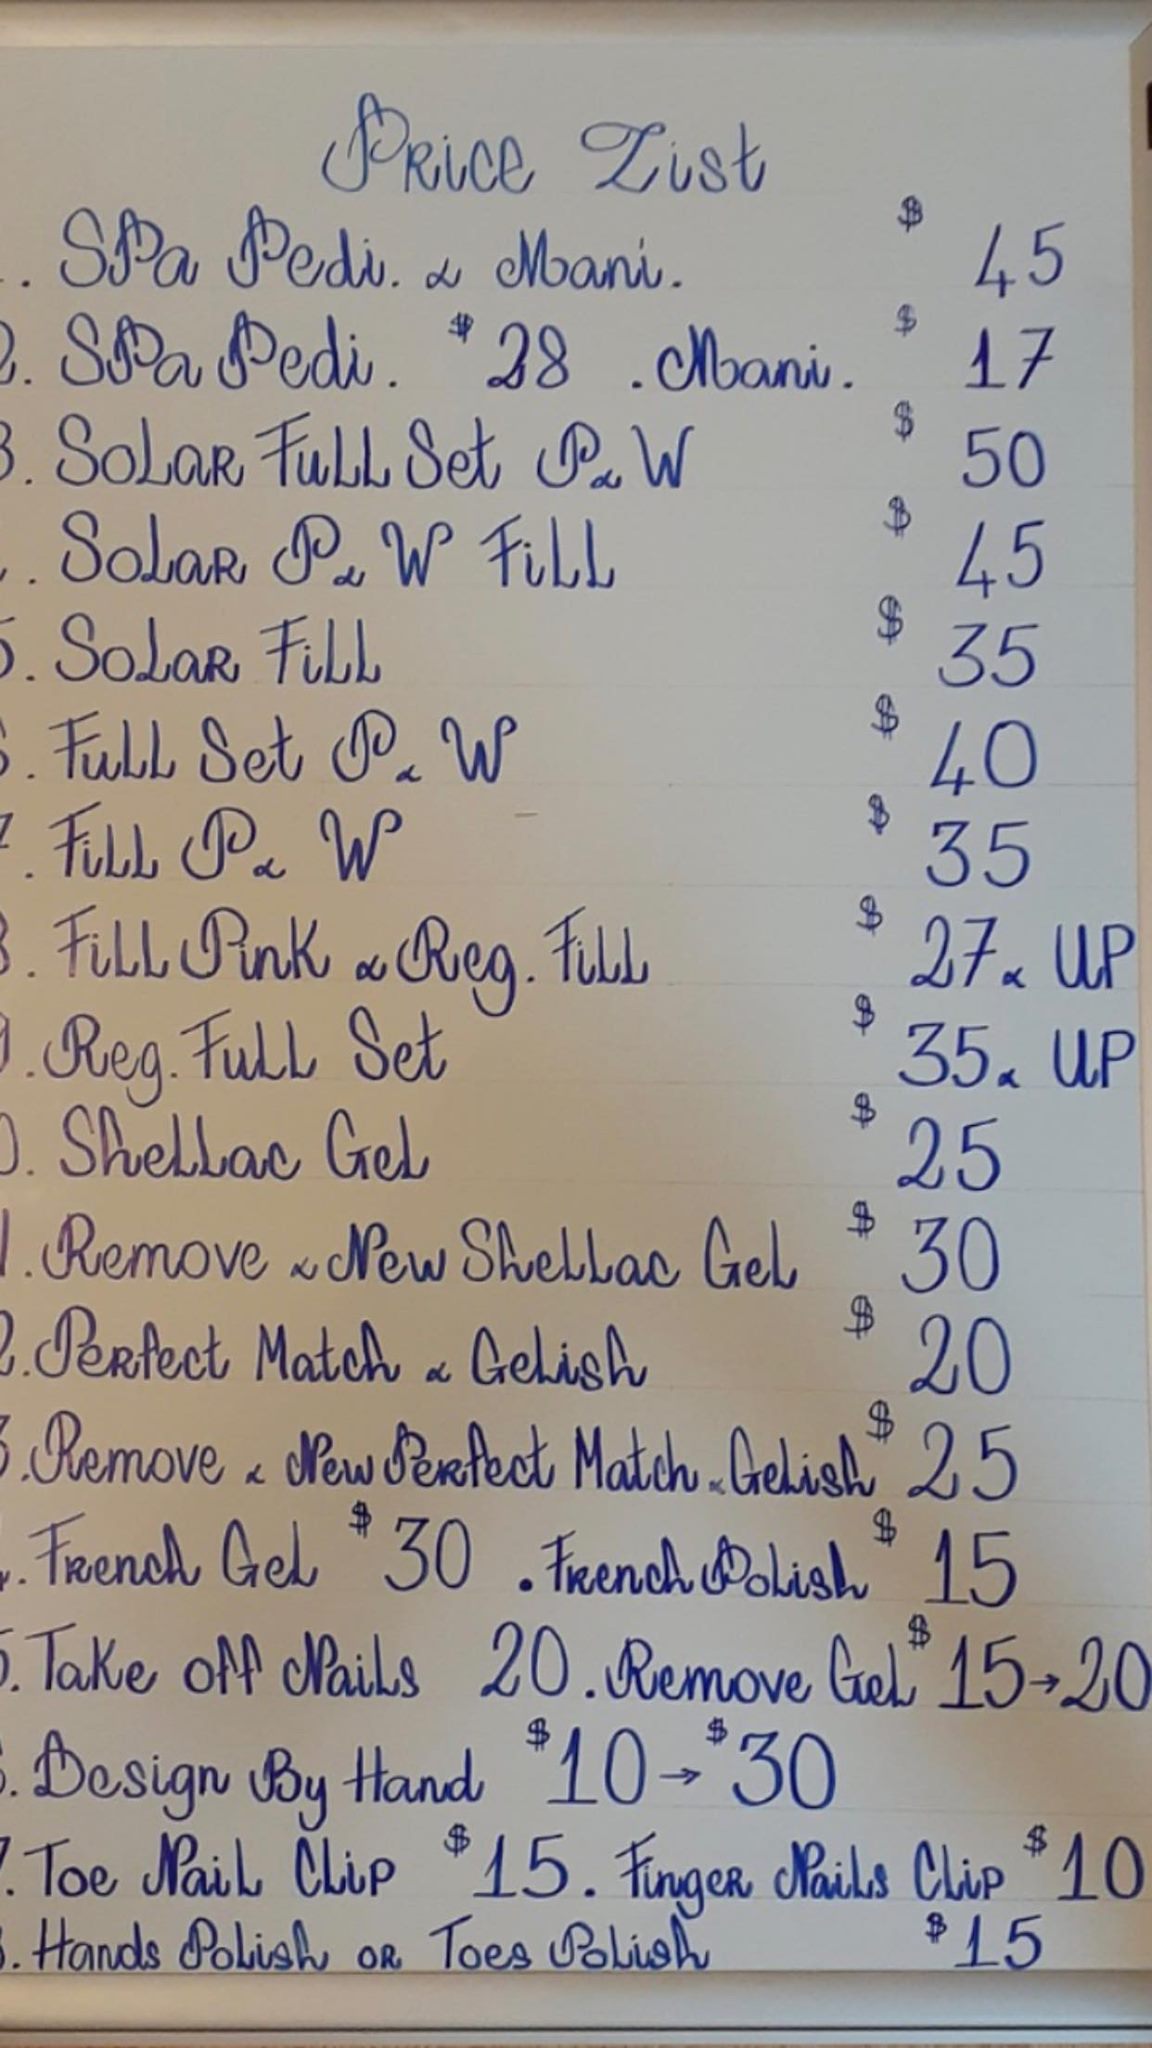 Price List
. Spa Pedi. & Mani. $ 45
2. Spa Pedi. $28 . Mani. $ 17
3. Solar Full Set P& W $ 50
. Solar P& W Fill $ 45
5. Solar Fill $ 35
6. Full Set P& W $ 40
7. Fill P& W $ 35
8. Fill Pink & Reg. Fill $ 27& UP
9. Reg. Full Set $ 35& UP
0. Shellac Gel $ 25
1. Remove & New Shellac Gel $ 30
2. Perfect Match & Gelish $ 20
3. Remove & New Perfect Match & Gelish $ 25
4. French Gel $30 . French Polish $ 15
5. Take off Nails 20 . Remove Gel $15→20
6. Design By Hand $10→$30
7. Toe Nail Clip $15 . Finger Nails Clip $10
8. Hands Polish or Toes Polish $15